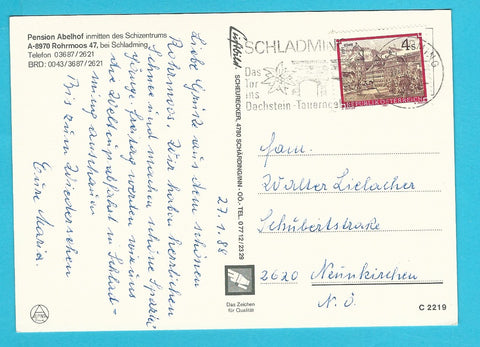 Pension Abelhof inmitten des Schizentrums
A-8970 Rohrmoos 47, bei Schladming
Telefon 03687/2621
BRD: 0043/3687/2621
Liebe Grüße aus dem schönen
Rohrmoos. Wir haben herrlichen
Schnee und machen schöne Spazier
gänge. Freitag werden wir uns
die Weltcupabfahrt in Schlad-
ming anschauen
Bis zum Wiedersehen
Eure Maria.
27.1.88
Luftbild SCHEUHENECKER, 4780 SCHÄRDING/INN - OÖ., TEL. 07712/2329
SCHLADMING
Das
Tor
ins
Dachstein-Tauerngebiet
4 S
REPUBLIK ÖSTERREICH
Fam.
Walter Lielacher
Schubertstraße
2620 Neunkirchen
N.Ö.
Das Zeichen
für Qualität
C 2219